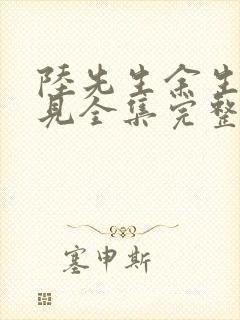 陸先生余生
見全集完整
塞申斯